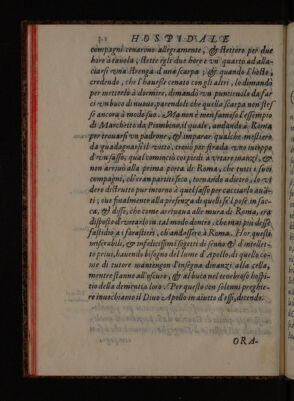 HOSPIDALE
compagni cenarono allegramente, & stettero per due
hore à tauola, stette egli due hore e vn quarto ad alla-
ciarsi vna strenga d'una scarpa; & quando l'hosto,
credendo, che l'hauesse cenato con gli altri, lo dimandò
per metterlo à dormire, dimandò vn puntiruolo da far
ci vn buco di nuouo, parendoli che quella scarpa non stes
se ancora à modo suo. Ma non è men famoso l'essempio
di Marchetto da Piombino, il quale, andando à Roma
per trouarsi vn padrone, & imparar qualche mestiero
da guadagnarsi il vitto, trouò per strada vno intoppo
d'vn sasso, qual cominciò coi piedi à vrtare inanzi, &
non arriuò alla prima piera di Roma, che tutti i suoi
compagni, ch'eran partiti seco, tornando adietro, lo vi-
dero distrutto pur intorno à quel sasso per cacciarlo auā-
ti; oue finalmente alla presenza di quelli se'l pose in sac-
ca, & disse, che come arriuaua alle mura di Roma, era
disposto di vrtarlo in tal modo dentro, che mai più desse
fastidio a i forastieri, ch'andassero à Roma. Hor questi
miserabili, & infelicissimi soggetti di senno & d'intellet-
to priui, hauendo bisogno del lume d'Apollo, di quello co-
me di tutore mantengon l'insegna dinanzi alla cella,
mentre stanno all'oscuro, & al buio nel tenebroso hospi-
tio della demenza loro. Per questo con solenni preghie-
re inuochiamo il Diuo Apollo in aiuto d'essi, dicendo.
ORA-